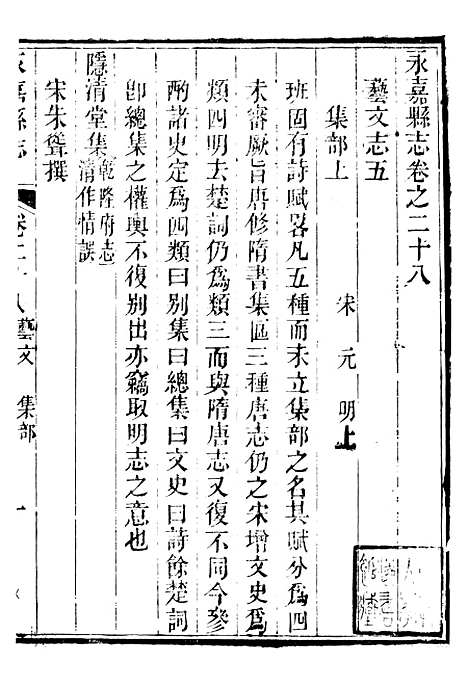 永嘉縣志卷之二十八
藝文志五
集部上　宋　元　明上
班固有詩賦畧凡五種而未立集部之名其賦分爲四
未審厥旨唐修隋書集區三種唐志仍之宋增文史爲
類四明去楚詞仍爲類三而與隋唐志又復不同今參
酌諸史定爲四類曰別集曰總集曰文史曰詩餘楚詞
卽總集之權輿不復別出亦竊取明志之意也
隱清堂集乾隆府志清作情誤
宋朱聳撰
永嘉縣志
卷二十八藝文　集部　一